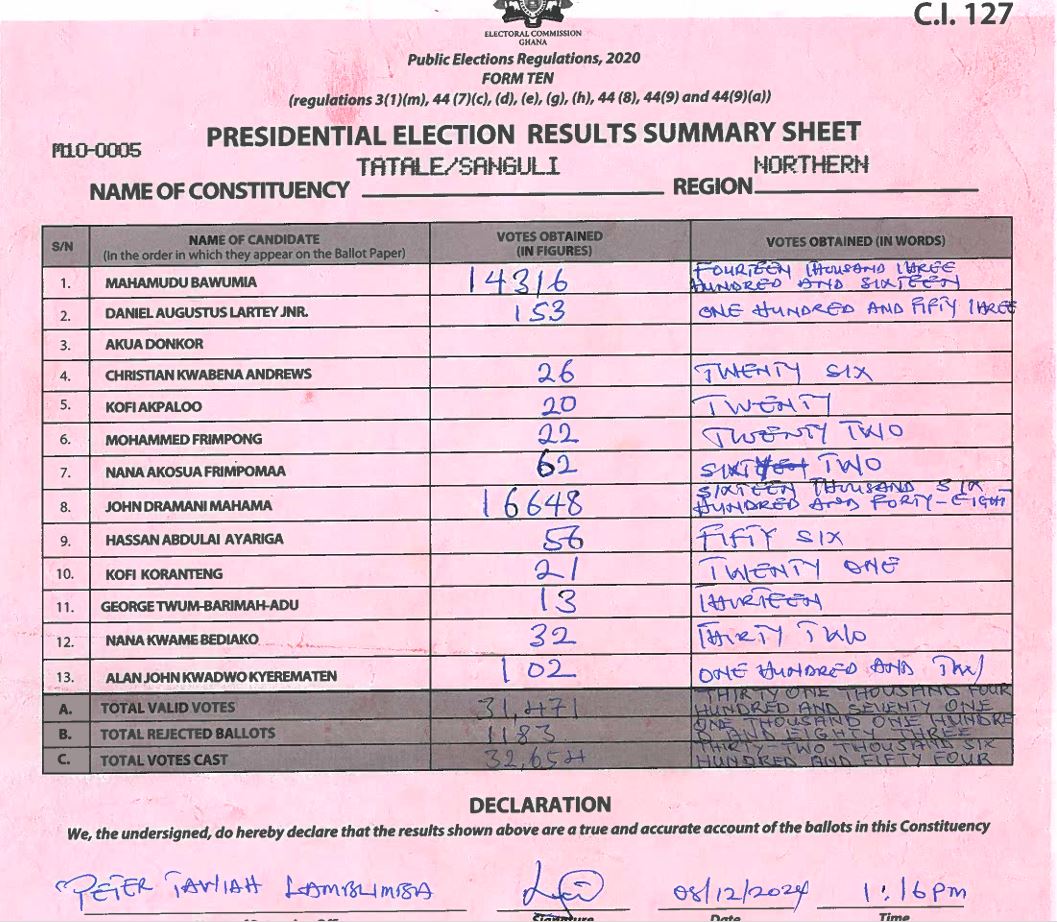 C.I. 127
ELECTORAL COMMISSION
GHANA
Public Elections Regulations, 2020
FORM TEN
(regulations 3(1)(m), 44 (7)(c), (d), (e), (g), (h), 44 (8), 44(9) and 44(9)(a))
PRESIDENTIAL ELECTION RESULTS SUMMARY SHEET
M10-0005
TATALE/SANGULI NORTHERN
NAME OF CONSTITUENCY REGION
S/N NAME OF CANDIDATE (In the order in which they appear on the Ballot Paper) VOTES OBTAINED (IN FIGURES) VOTES OBTAINED (IN WORDS)
1. MAHAMUDU BAWUMIA 14316 FOURTEEN THOUSAND THREE HUNDRED AND SIXTEEN
2. DANIEL AUGUSTUS LARTEY JNR. 153 ONE HUNDRED AND FIFTY THREE
3. AKUA DONKOR
4. CHRISTIAN KWABENA ANDREWS 26 TWENTY SIX
5. KOFI AKPALOO 20 TWENTY
6. MOHAMMED FRIMPONG 22 TWENTY TWO
7. NANA AKOSUA FRIMPOMAA 62 SIXTY TWO
8. JOHN DRAMANI MAHAMA 16648 SIXTEEN THOUSAND SIX HUNDRED AND FORTY-EIGHT
9. HASSAN ABDULAI AYARIGA 56 FIFTY SIX
10. KOFI KORANTENG 21 TWENTY ONE
11. GEORGE TWUM-BARIMAH-ADU 13 THIRTEEN
12. NANA KWAME BEDIAKO 32 THIRTY TWO
13. ALAN JOHN KWADWO KYEREMATEN 102 ONE HUNDRED AND TWO
A. TOTAL VALID VOTES 31,471 THIRTY ONE THOUSAND FOUR HUNDRED AND SEVENTY ONE
B. TOTAL REJECTED BALLOTS 1183 ONE THOUSAND ONE HUNDRED AND EIGHTY THREE
C. TOTAL VOTES CAST 32,654 THIRTY-TWO THOUSAND SIX HUNDRED AND FIFTY FOUR
DECLARATION
We, the undersigned, do hereby declare that the results shown above are a true and accurate account of the ballots in this Constituency
PETER 08/12/2024 1:16pm
Signature Date Time